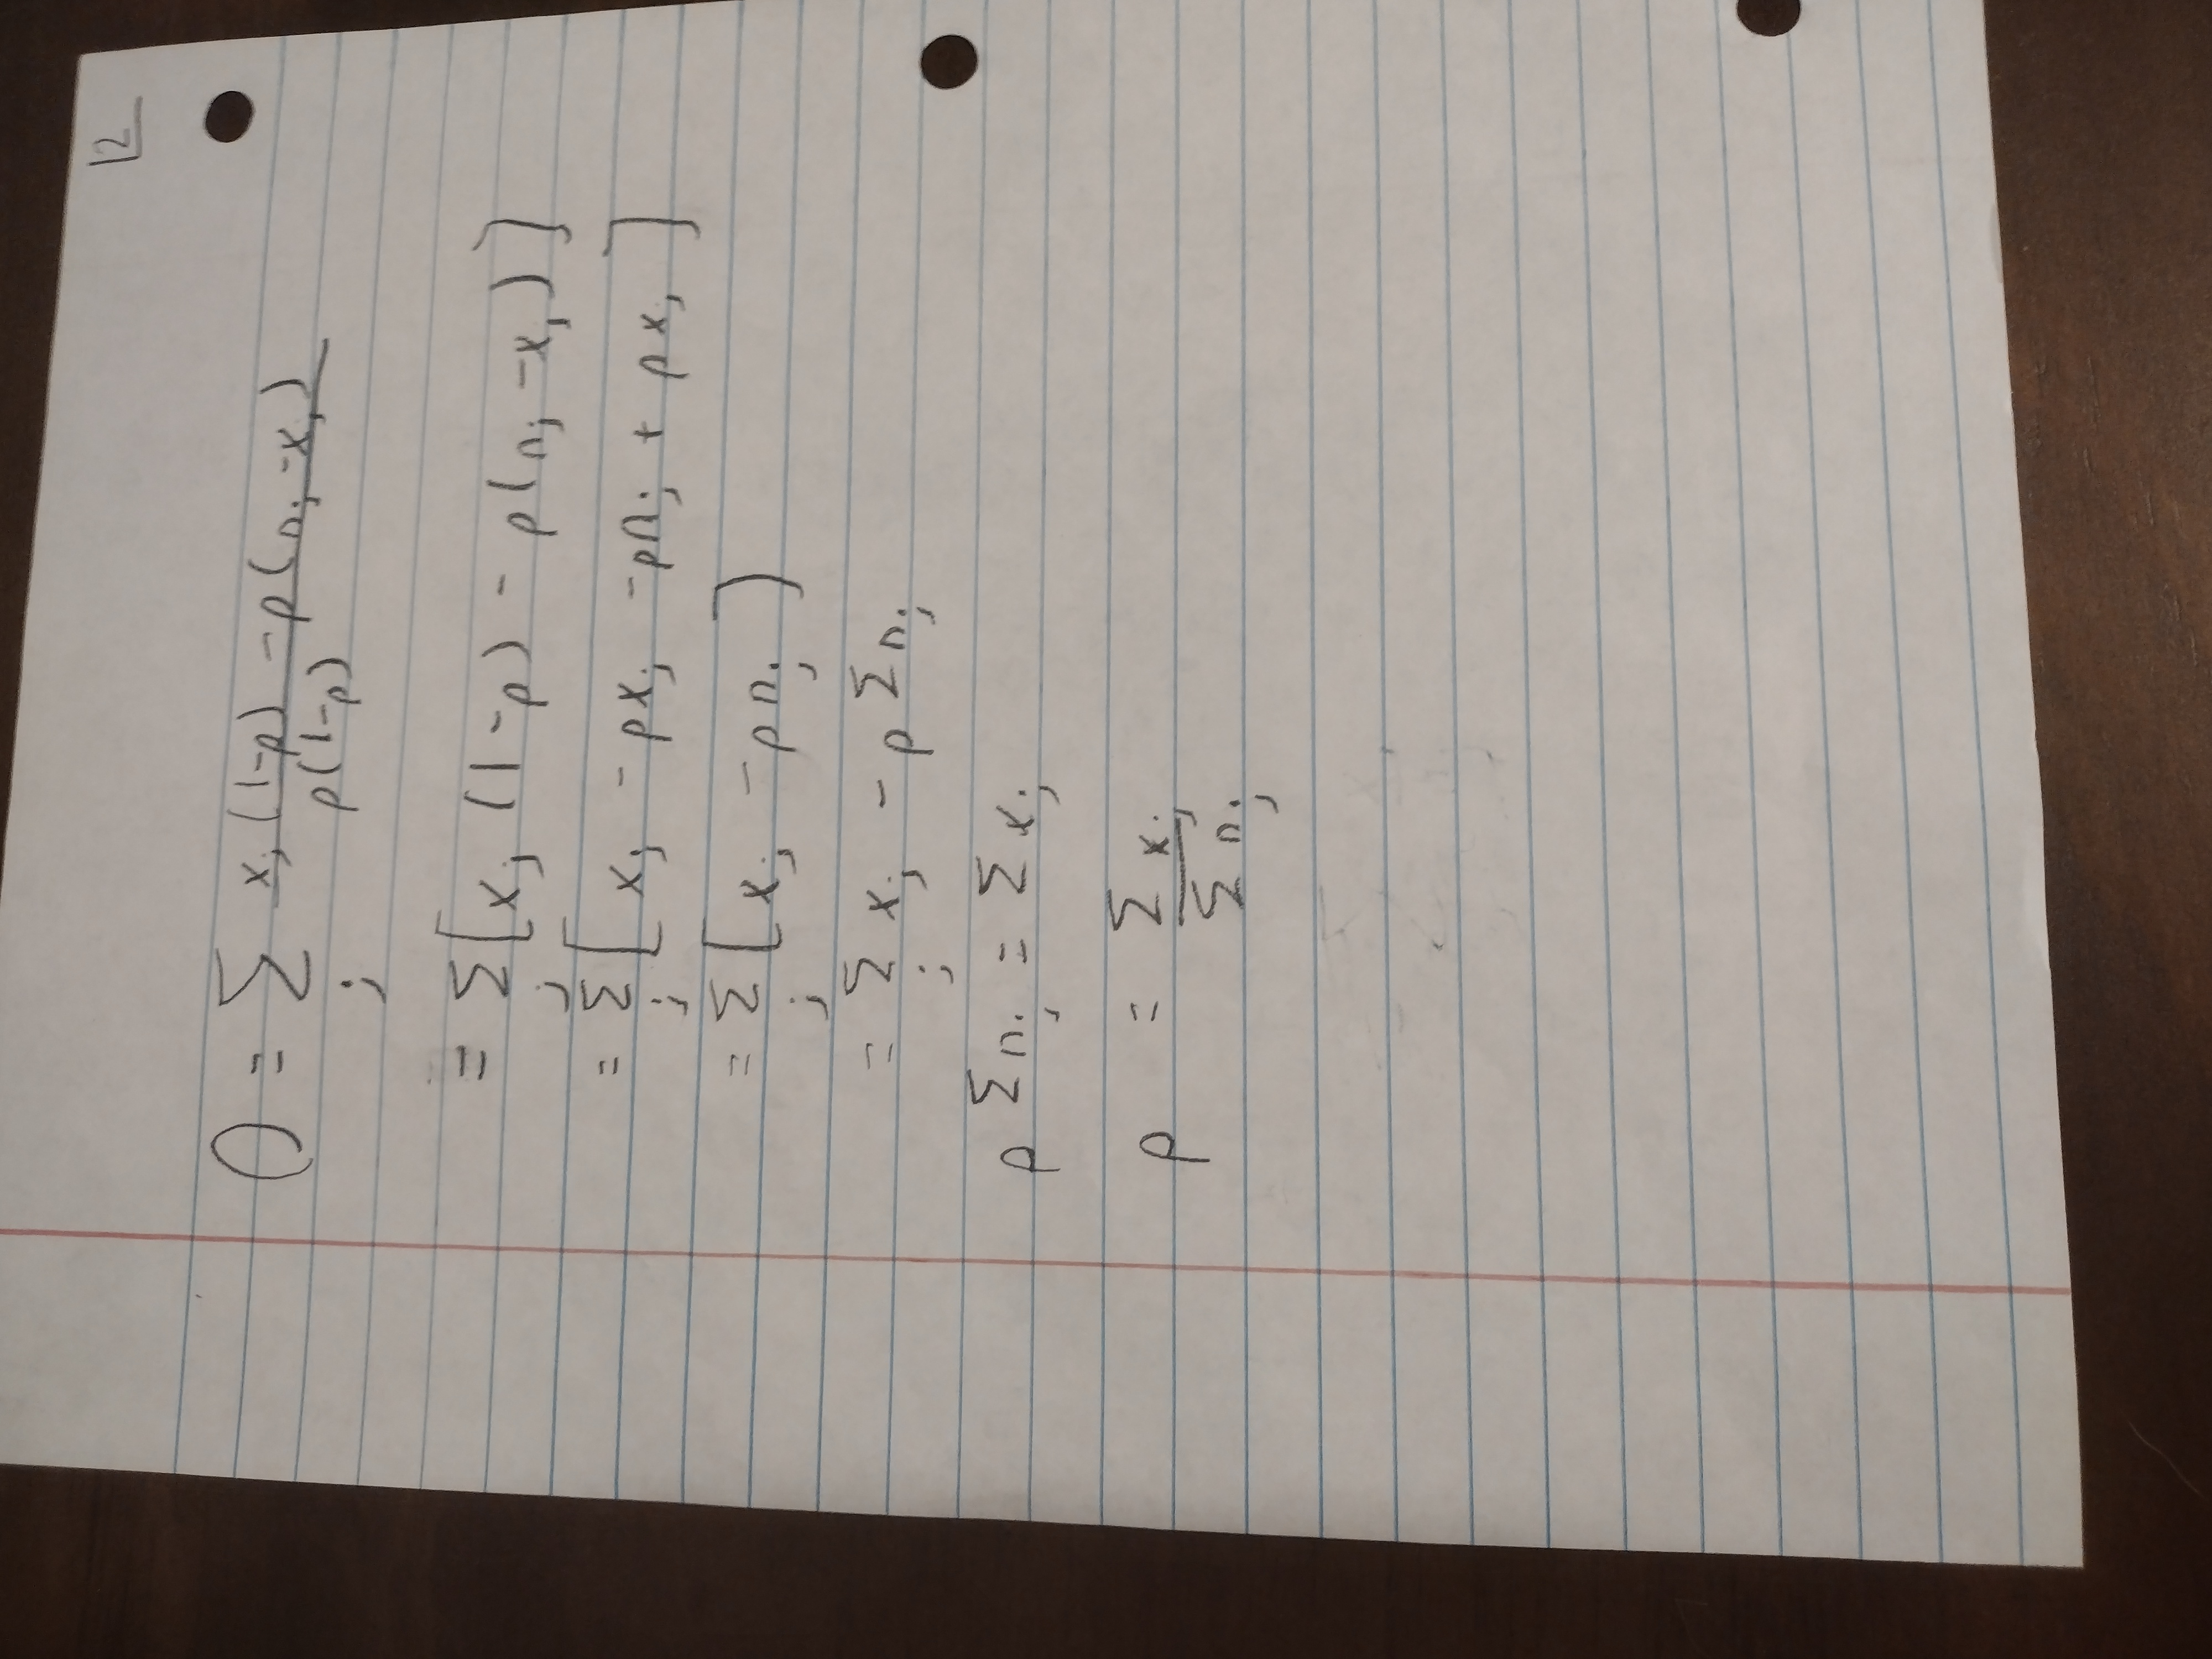 2
0 = Σ_j (x_j (1-p) - p(n_j - x_j)) / (p(1-p))
= Σ_j [x_j (1-p) - p(n_j - x_j)]
= Σ_j [x_j - p x_j - p n_j + p x_j]
= Σ_j [x_j - p n_j)
= Σ_j x_j - p Σ n_j
p Σ n_j = Σ x_j
p = Σ x_j / Σ n_j